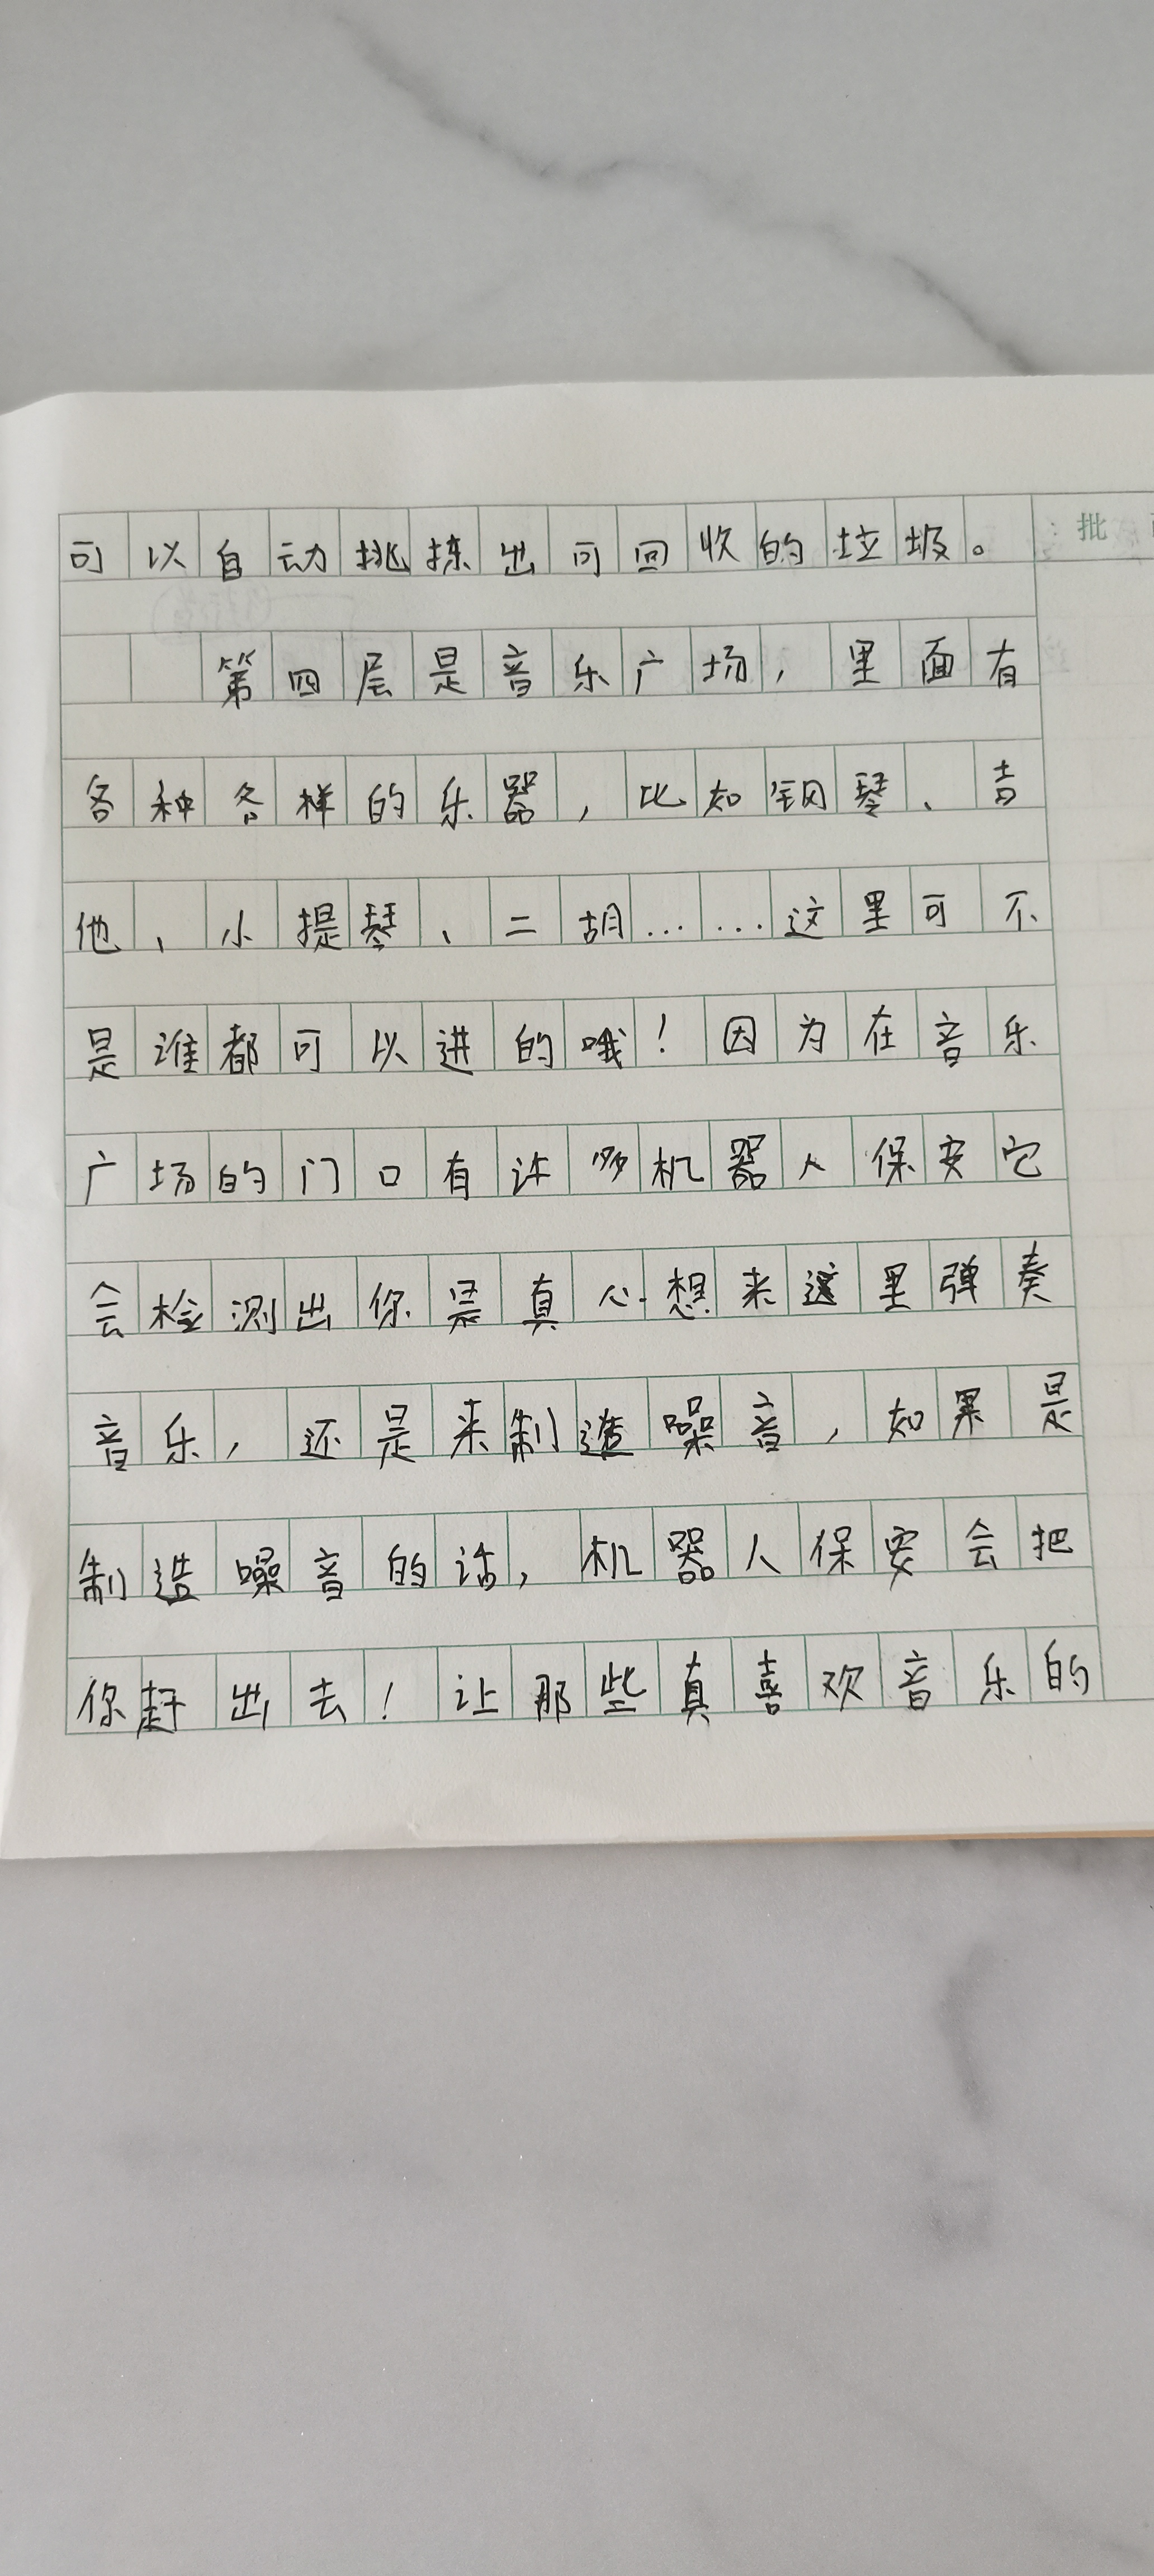 可以自动挑拣出可回收的垃圾。
批
第四层是音乐广场，里面有
各种各样的乐器，比如钢琴、吉
他、小提琴、二胡……这里可不
是谁都可以进的哦！因为在音乐
广场的门口有许多机器人保安它
会检测出你是真心想来这里弹奏
音乐，还是来制造噪音，如果是
制造噪音的话，机器人保安会把
你赶出去！让那些真喜欢音乐的